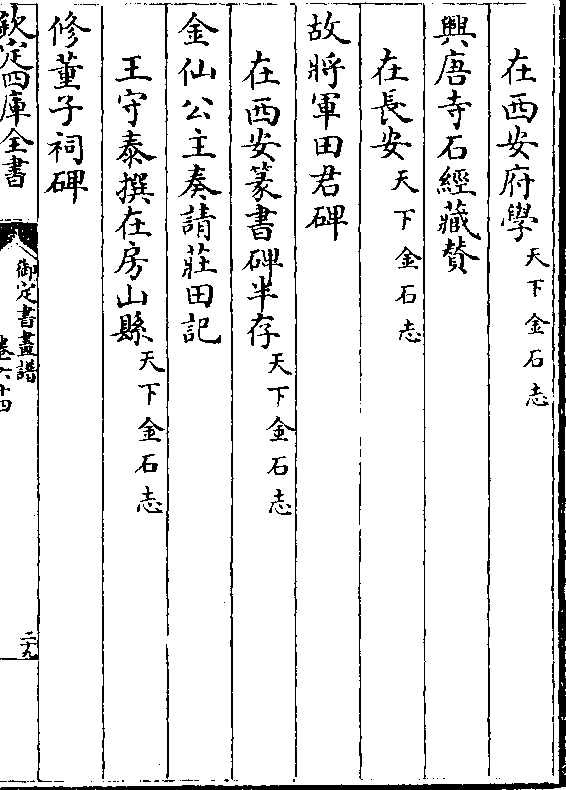 在西安府學天下金石志
興唐寺石經藏賛
在長安天下金石志
故將軍田君碑
在西安篆書碑半存天下金石志
金仙公主奏請莊田記
王守泰撰在房山縣天下金石志
修董子祠碑
欽定四庫全書
御定書畫譜
卷六十四
二十九